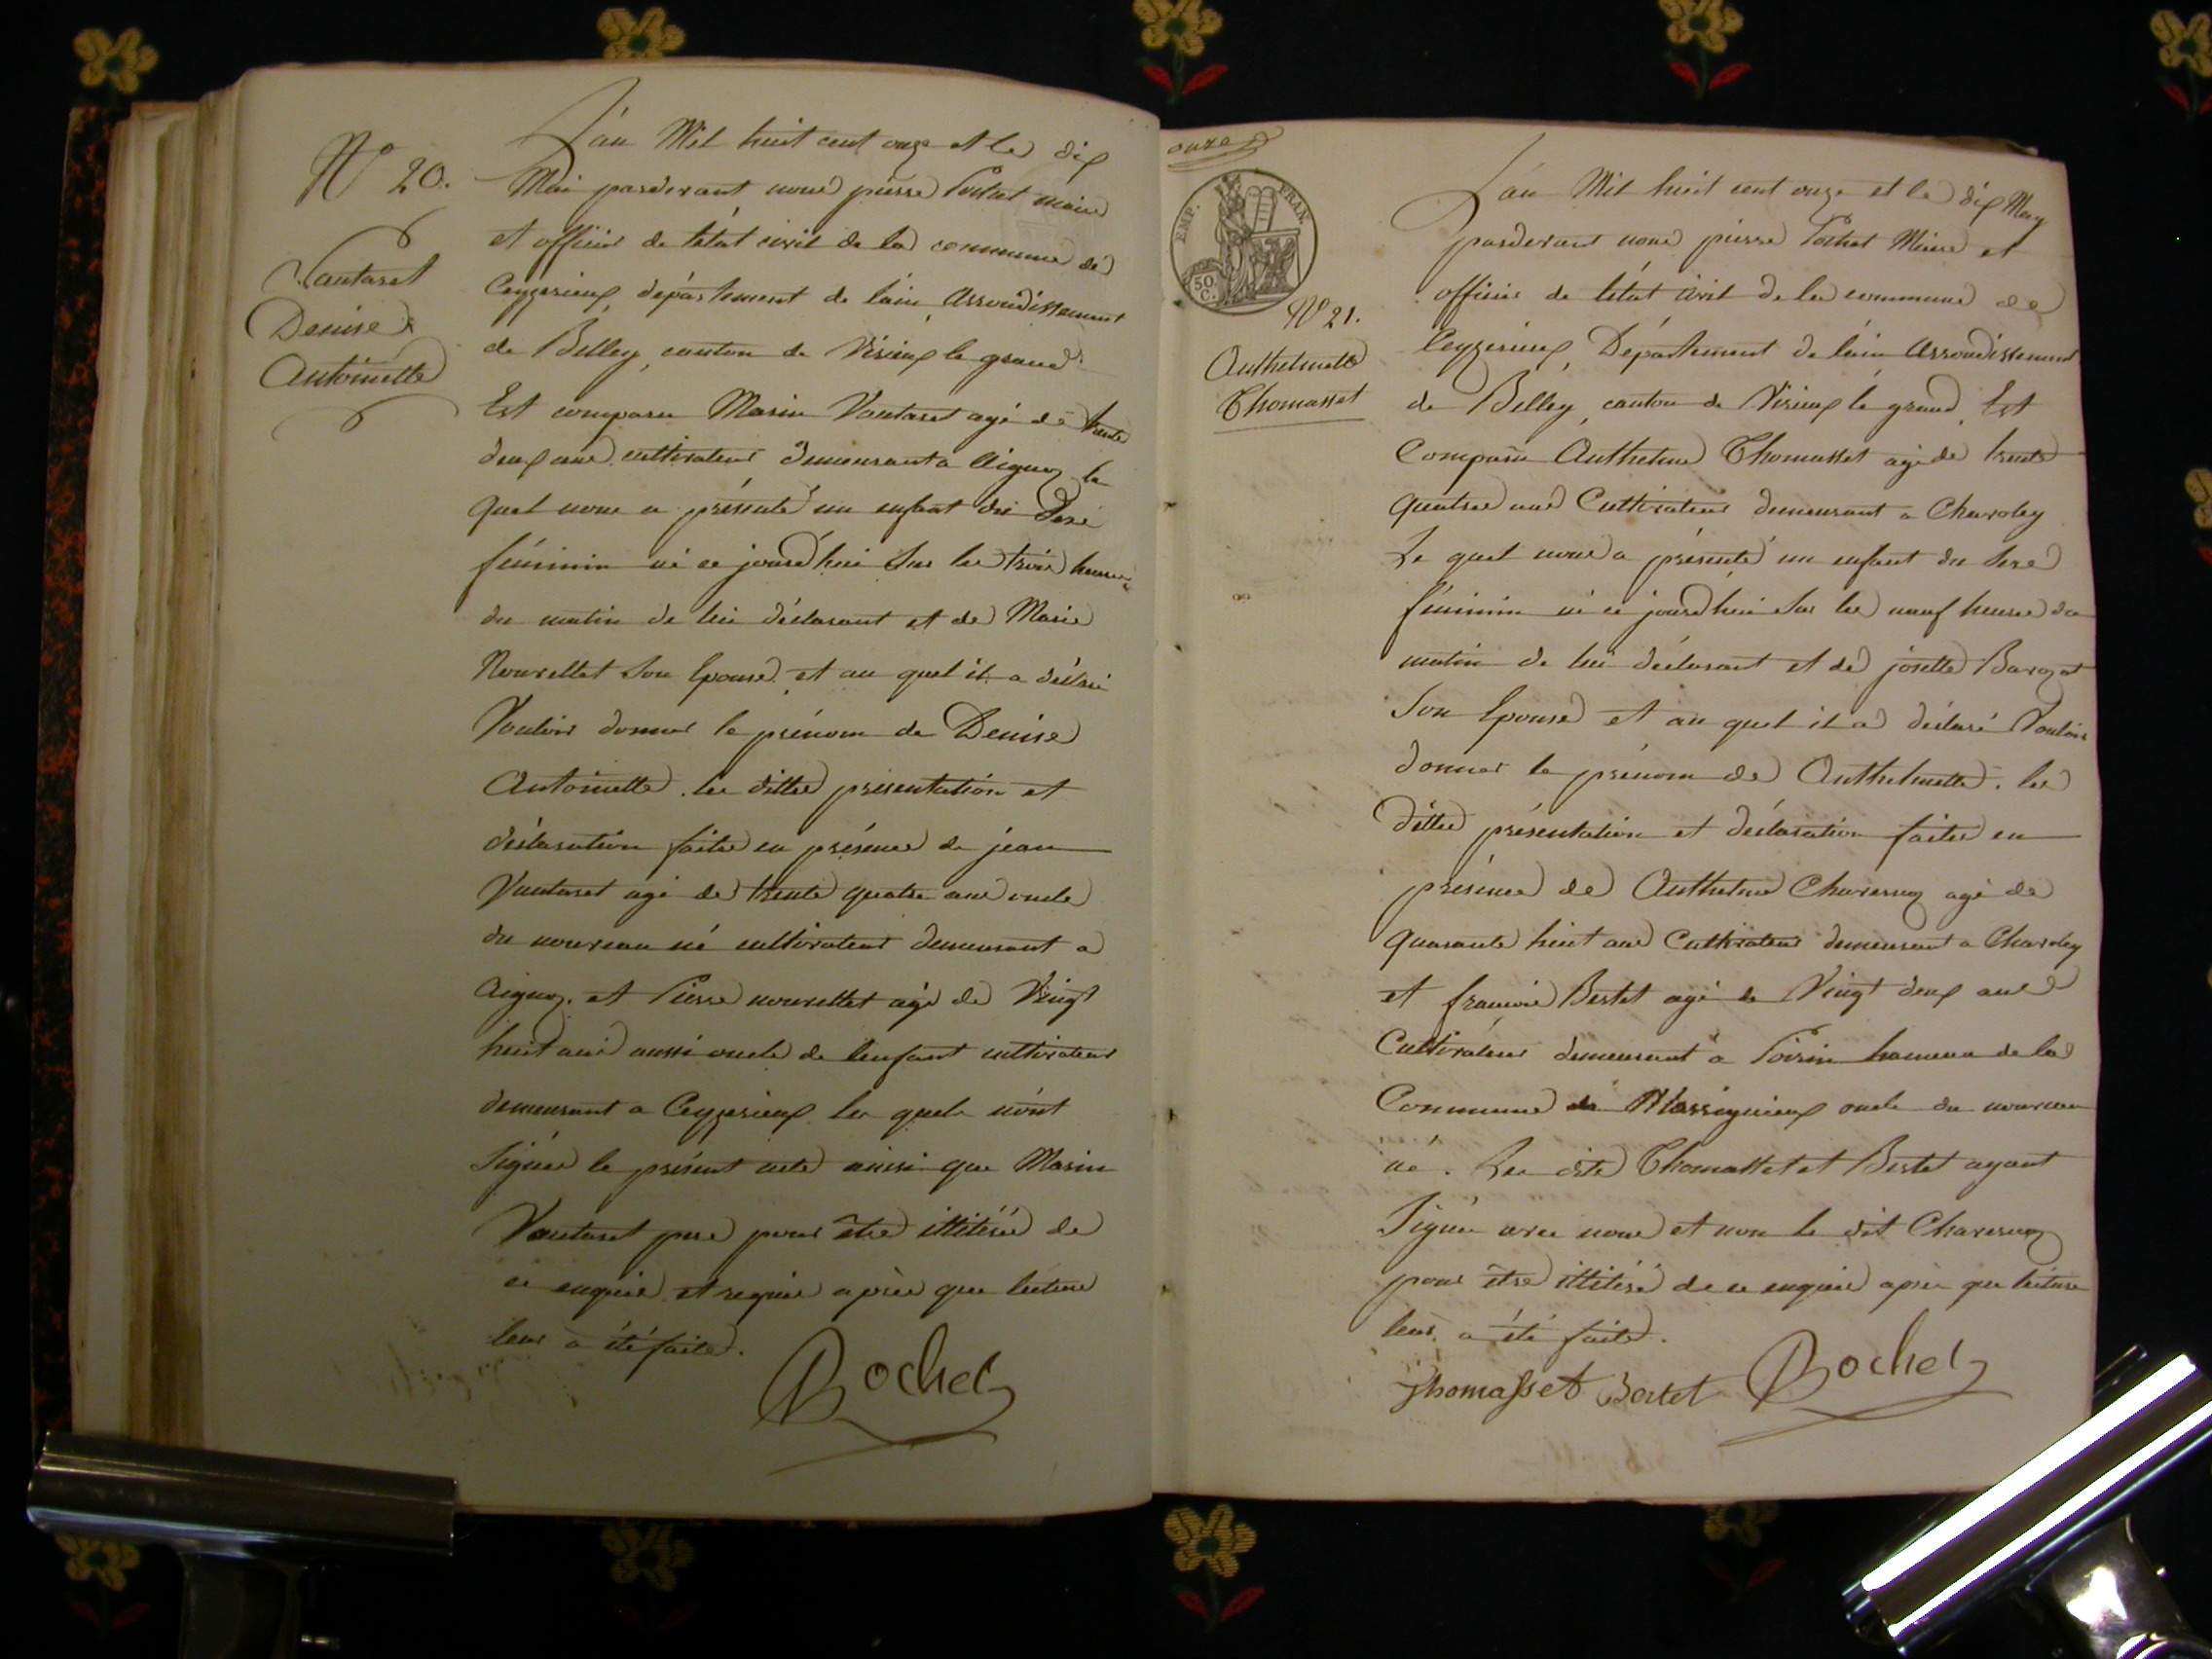 N° 20.
Vautaret
Denise
Antoinette
L'an Mil huit cent onze et le dix
Mai pardevant nous pierre Rochet maire
et officier de l'état civil de la commune de
Ceyzerieux, département de l'ain, Arrondissement
de Belley, canton de Virieux le grand
Est comparu Marin Vautaret agé de trente
deux ans cultivateur demeurant a Aignoz le
quel nous a présenté un enfant du sexe
féminin né ce jourd'hui sur les trois heures
du matin de lui déclarant et de Marie
Nourellet son Epouse et au quel il a déclaré
Vouloir donner le prénom de Denise
Antoinette. les dittes présentation et
déclaration faites en présence de jean
Vautaret agé de trente quatre ans oncle
du nouveau né cultivateur demeurant a
Aignoz. et Pierre nourellet agé de Vingt
huit ans aussi oncle de l'enfant cultivateur
demeurant a Ceyzerieux les quels n'ont
Signés le présent acte ainsi que Marin
Vautaret pere pour être illitérés de
ce enquis et requis après que lecture
leur a été faite.
Rochet
onze
EMP. FRAN.
50 C.
N° 21.
Anthelmette
Thomasset
L'an Mil huit cent onze et le dix May
pardevant nous pierre Rochet Maire et
officier de l'état civil de la commune de
Ceyzerieux, Département de l'ain Arrondissement
de Belley, canton de Virieux le grand, Est
Comparu Anthelme Thomasset agé de trente
quatre ans Cultivateur demeurant a Charoley
Le quel nous a présenté un enfant du sexe
féminin né ce jourd'hui sur les neuf heures du
matin de lui déclarant et de josette
Son Epouse et au quel il a déclaré Vouloir
donner le prénom de Anthelmette. les
dittes présentation et déclaration faites en
présence de Anthelme Charveroz agé de
quarante huit ans Cultivateur demeurant a Charoley
et françois Bertet agé de Vingt deux ans
Cultivateur demeurant a Poirin hameau de la
Commune de Massignieux oncle du nouveau
né. Les dits Thomasset et Bertet ayant
Signés avec nous et non le dit Charveroz
pour être illitéré de ce enquis après que lecture
leur a été faite.
Thomasset Bertet Rochet